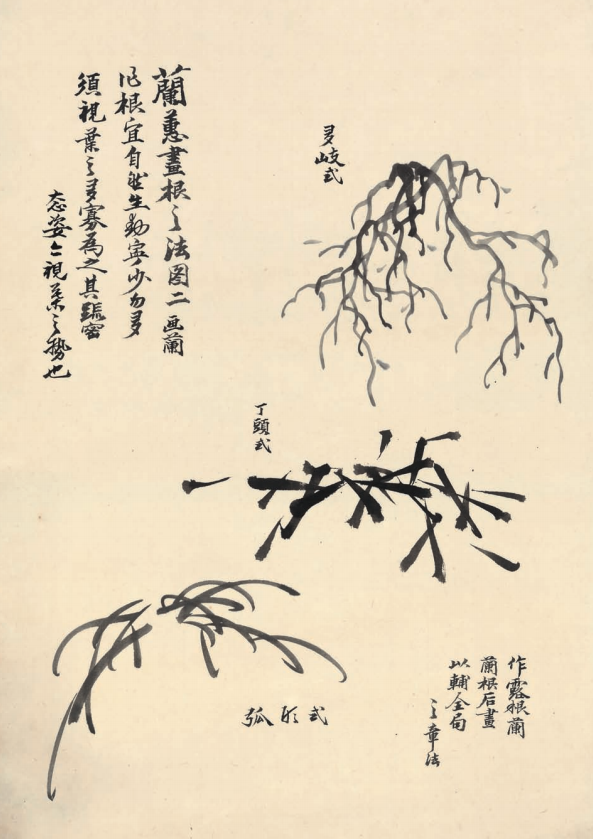 蘭蕙畫根之法图二 画蘭
根宜自然生動寧少勿多
須視葉之多寡為之其疏密
态姿亦視葉之勢也
多岐式
丁頭式
弧形式
作露根蘭
蘭根后畫
以輔全局
之章法